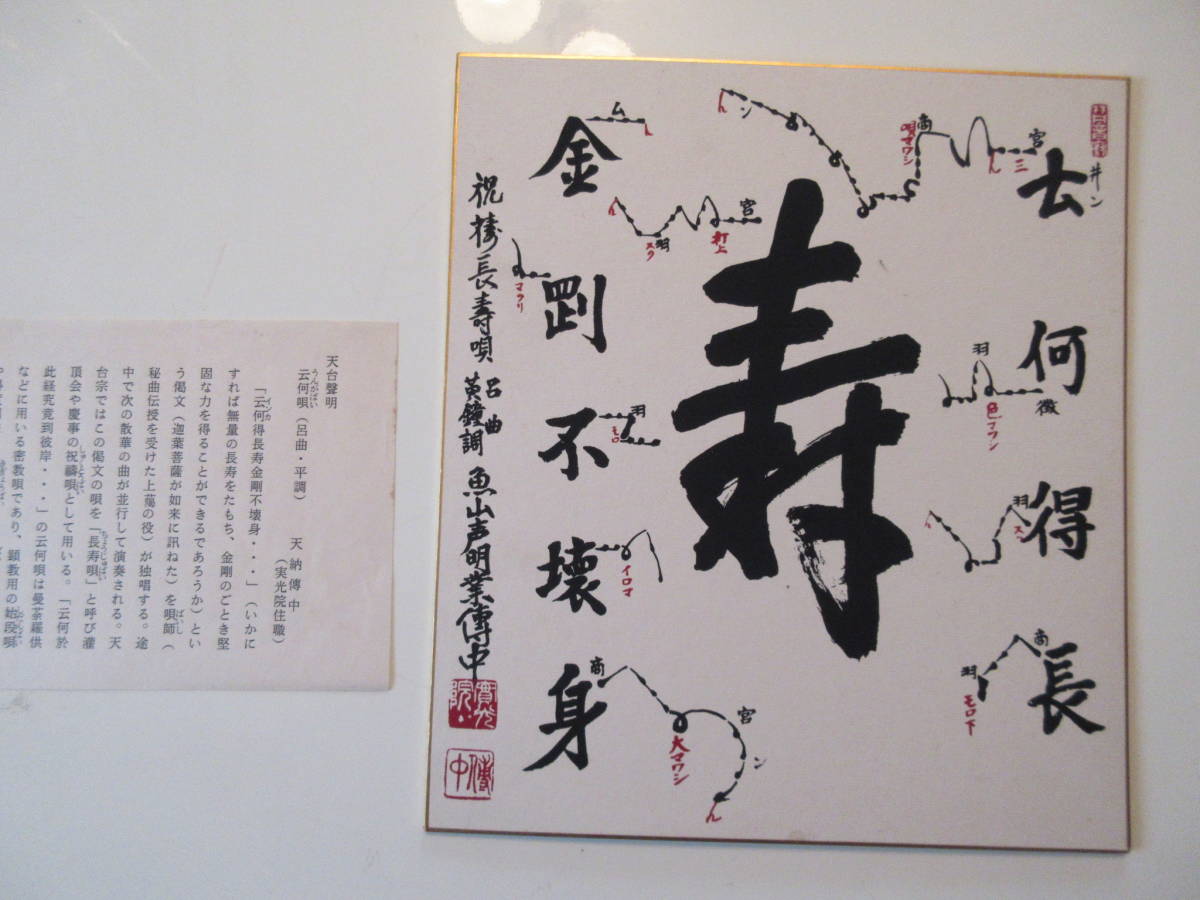 云何得長
寿
金剛不壊身
宮
三
商
唄マワシ
ン
宮
打上
羽
スク
羽
徴
羽
商
羽
モロ下
ム
マクリ
羽
モロ
イロマ
商
宮
ン
大マワシ
祝祷長寿唄
呂曲
黄鐘調
魚山声明業傳中
傳中
天台聲明
云何唄（呂曲・平調）
うんがばい
天納傳中
（実光院住職）
「云何得長寿金剛不壊身・・・」（いかに
インカ
すれば無量の長寿をたもち、金剛のごとき堅
固な力を得ることができるであろうか）とい
う偈文（迦葉菩薩が如来に訊ねた）を唄師（
ばいし
秘曲伝授を受けた上﨟の役）が独唱する。途
中で次の散華の曲が並行して演奏される。天
台宗ではこの偈文の唄を「長寿唄」と呼び灌
ちょうじゅばい
頂会や慶事の祝禱唄として用いる。「云何於
しゅくとうばい
此経究竟到彼岸・・・」の云何唄は曼荼羅供
などに用いる密教唄であり、顕教用の始段唄